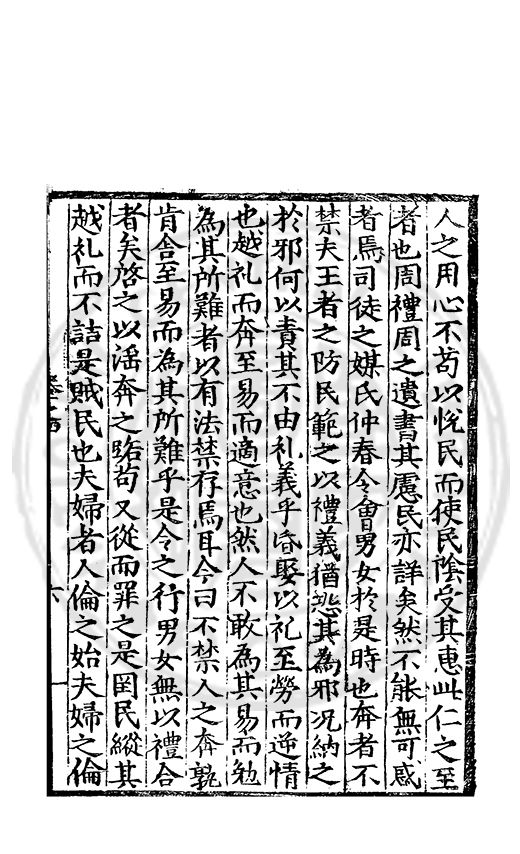 人之用心不苟以悅民而使民陰受其惠此仁之至
者也周禮周之遺書其慮民亦詳矣然不能無可惑
者焉司徒之媒氏仲春令會男女於是時也奔者不
禁夫王者之防民範之以禮義猶恐其為邪况納之
於邪何以責其不由礼義乎昏娶以礼至勞而逆情
也越礼而奔至易而適意也然人不敢為其易而勉
為其所難者以有法禁存焉耳今曰不禁人之奔孰
肯舍至易而為其所難乎是令之行男女無以禮合
者矣啓之以淫奔之路苟又從而罪之是罔民縱其
越礼而不詰是賊民也夫婦者人倫之始夫婦之倫
六